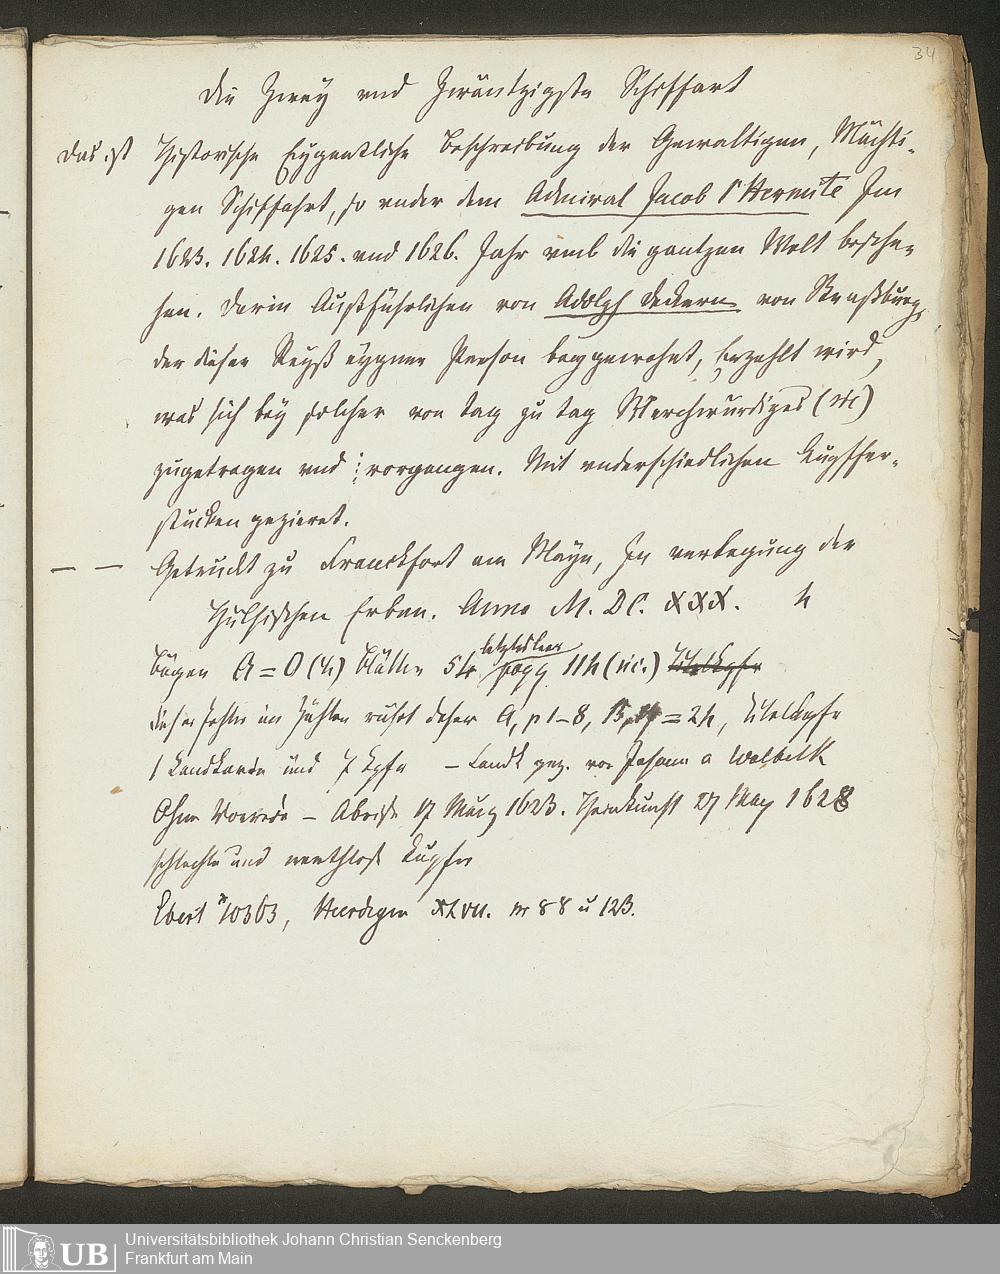 34
Die Zwey und Zwäntzigste Schiffart
Das ist Historische Eygentliche Beschreibung der Gewaltigen, Mächti-
gen Schiffahrt, so under dem Admiral Jacob l'Hermite Im
1623. 1624. 1625. und 1626. Jahr umb die gantzen Welt besche-
hen. Darin Außführlichen von Adolph Deckern von Straßburg,
der dieser Reyß eygner Person beygewohnt, Erzehlt wird,
was sich bey solcher von tag zu tag Merckwürdiges (sic)
zugetragen und vorgangen. Mit underschiedlichen Kupffer-
stucken gezieret.
— — Getruckt zu Franckfort am Mayn, In verlegung der
Hulsischen Erben. Anno M. DC. XXX. 4
Bogen A = O (4) Blätter 54 letztes leer pagg 114 (sic.) Titelkpfr
dieser Fehler im Zählen rührt daher A, p 1–8, B, = 24, Titelkupfr
1 Landkarte und 7 Kpfr — Landk gez. von Johann a Walbeck
Ohne Vorrede — Abreise 17 März 1623. Heimkunft 27 May 1628
schlechte und werthlose Kupfer
Ebert 10363, XLVII. nr 88 u 123.
UB Universitätsbibliothek Johann Christian Senckenberg
Frankfurt am Main